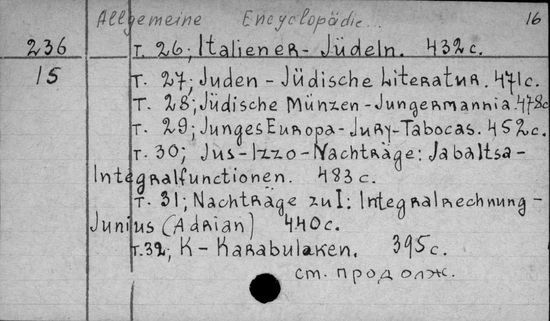 Allgemeine Encyclopädie... 16
236 т. 26; Italiener- Jüdeln. 432 с.
15 т. 27; Juden - Jüdische Literatur. 471 с.
т. 28; Jüdische Münzen - Jungermannia. 478 с
т. 29; Junges Europa - Jury-Tabocas. 452 с.
т. 30; Jus - Izzo - Nachträge: Jabaltsa -
Integralfunctionen. 483 с.
т. 31; Nachträge zu I: Integralrechnung -
Junius (Adrian) 440 с.
т. 32; K - Karabulaken. 395 с.
ст. продолж.